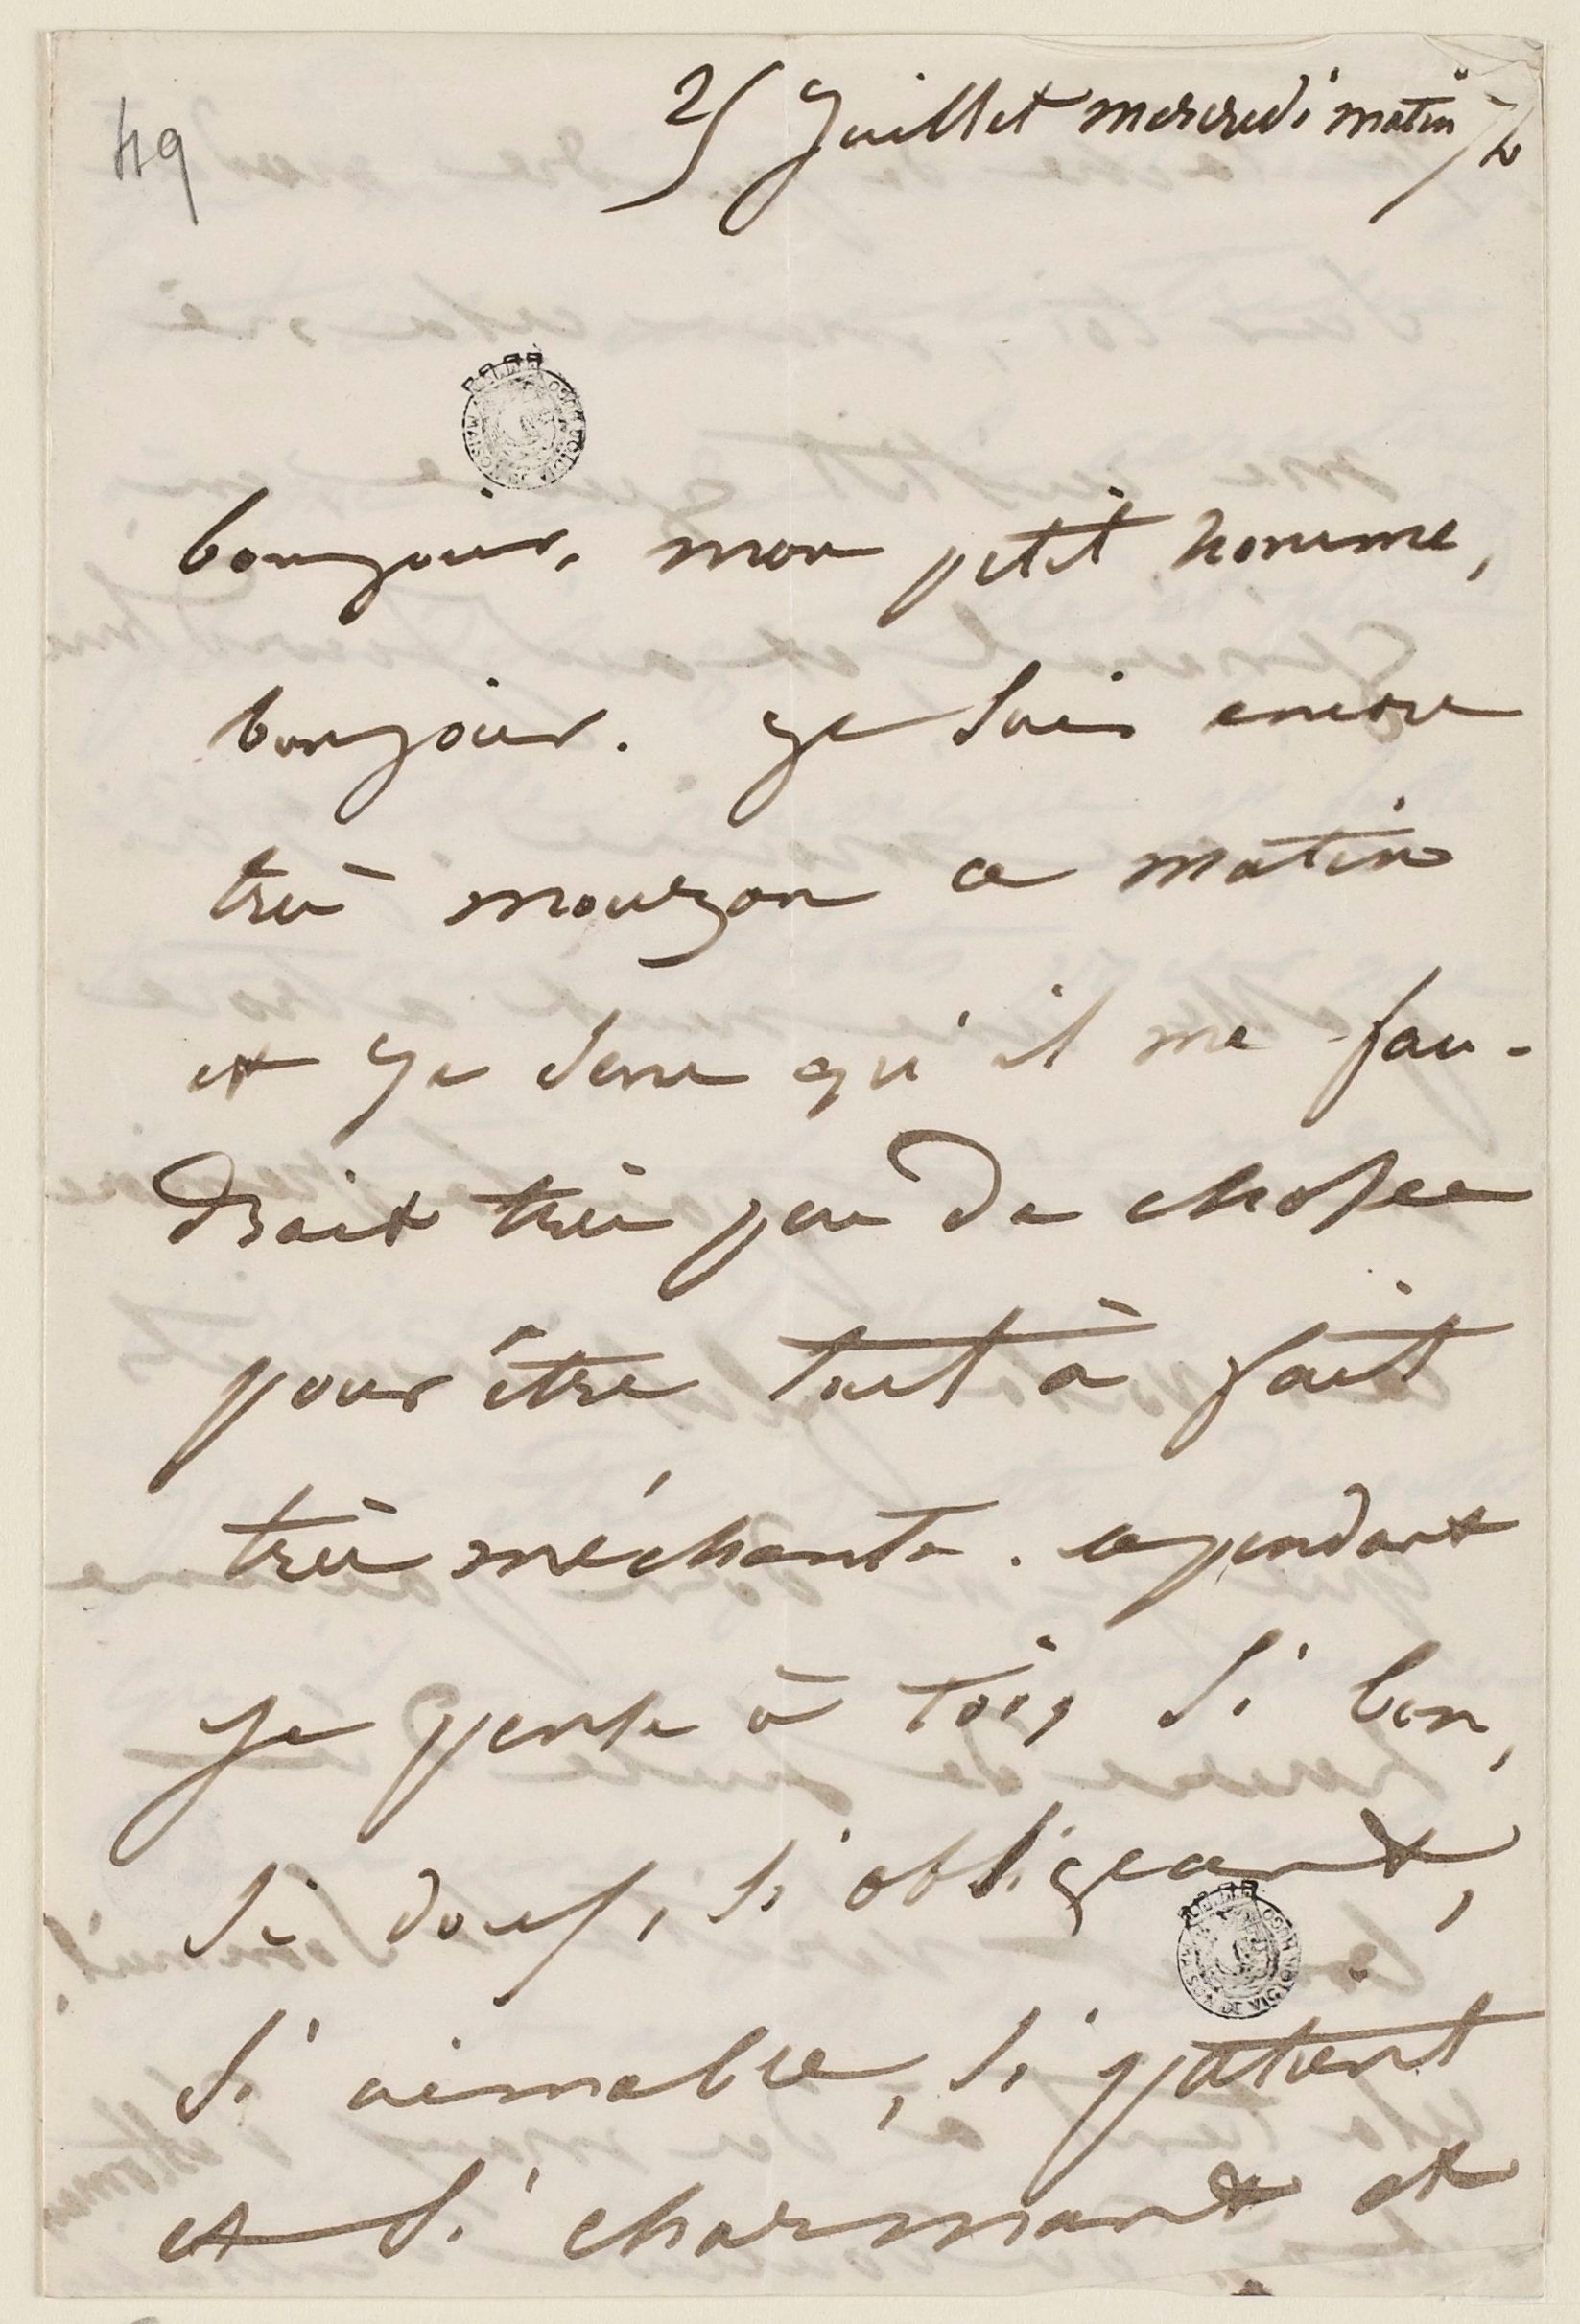 49
25 Juillet mercredi matin 7h
MAISON DE VICTOR HUGO
bonjour, mon petit homme,
bonjour. Je suis encore
très mouzon ce matin
et je sens qu'il me fau-
drait très peu de choses
pour être tout à fait
très méchante. cependant
je pense à toi, si bon,
si doux, si obligeant,
MAISON DE VICTOR HUGO
si aimable, si patient
et si charmant et